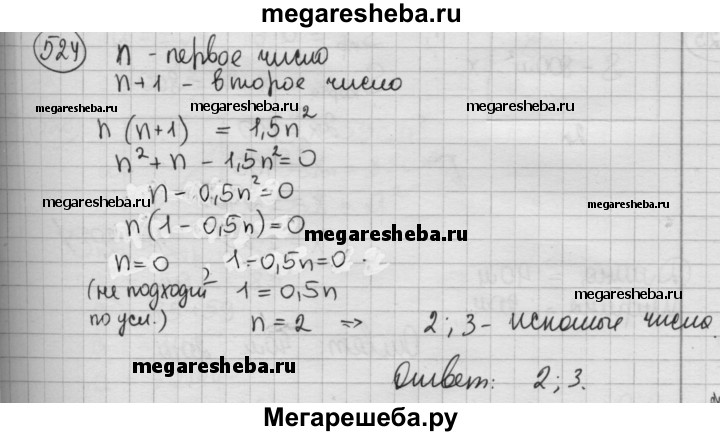 megaresheba.ru
524 n - первое число
n+1 - второе число
megaresheba.ru megaresheba.ru megaresheba.ru
n(n+1) = 1,5n²
n² + n - 1,5n² = 0
n - 0,5n² = 0
megaresheba.ru megaresheba.ru
n(1 - 0,5n) = 0
megaresheba.ru
n = 0, 1 - 0,5n = 0
(не подходит 1 = 0,5n
megaresheba.ru
по усл.) n = 2 => 2; 3 - искомые числа.
megaresheba.ru
Ответ: 2; 3.
Мегарешеба.ру